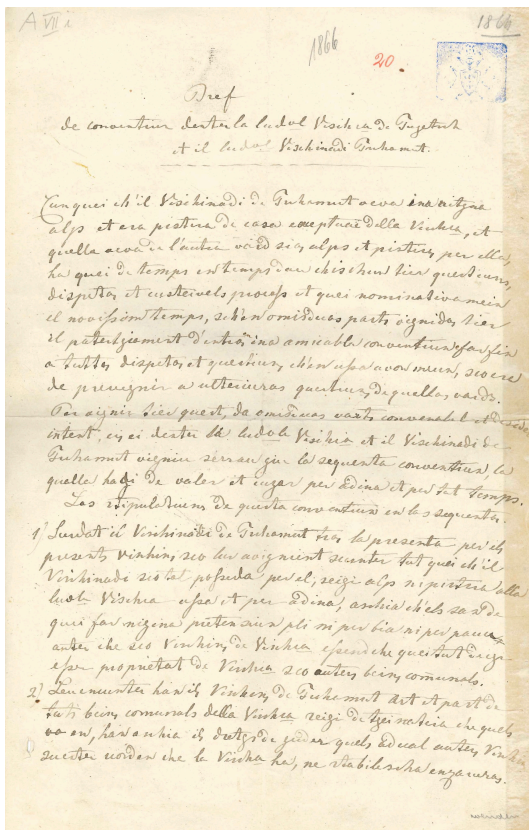 A VII i
1866
1866
20.
Bref
de conventiun denter la lud. Vischna de Tujetsch
et il lud. Vischinadi Tschamut.
Tunquei ch'il Vischinadi de Tschamut aeva ina atgna
alps et era pistira de casa exceptuai della Vischna, et
quella aeva de l'autra vard sias alps et pistiras per ella,
ha quei de temps en temps dau chischun tier questiuns,
dispetas et custeivels process et quei nominativamein
il novissim temps, schèn omisduas parts vignidas tier
il patertgiament d'entrar ina amicabla conventiun e far fin
a tuttas dispetas et questiuns, ch'en ussa avon maun, sco era
de prevegnir a ulteriuras questiuns de quellas vards.
Per vignir tier quest, da omisduas varts convenabel et
intent, ei denter la lud. Vischna et il Vischinadi de
Tschamut vigniu serrau giu la sequenta conventiun la
qualla hagi de valer et cuzar per adina et per tut temps.
Las stipulatiuns de questa conventiun en las sequentas.
1) Surdat il Vischinadi de Tschamut tras la presenta per ils
presents vischins sco lur avignient suenter tut quei ch'il
Vischinadi sco tal posseda per el, seigi alps ni pistira alla
lud. Vischna ussa et per adina, a schia ch'els san de
quei far nizgina pretensiun pli ni per bia ni per pauc
auter che sco Vischins de Vischna essend che quei tut deigi
esser proprietat de Vischna sco auters beins comunals.
2) Leu encunter han ils Vischins de Tschamut dret et part de
tuts beins comunals della Vischna seigi de tgei natira che quels
vo en, han a schia il dretg de guder quels adual auters Vischins
suenter uorden che la Vischna ha, ne stabilescha enzacuras.
wenden